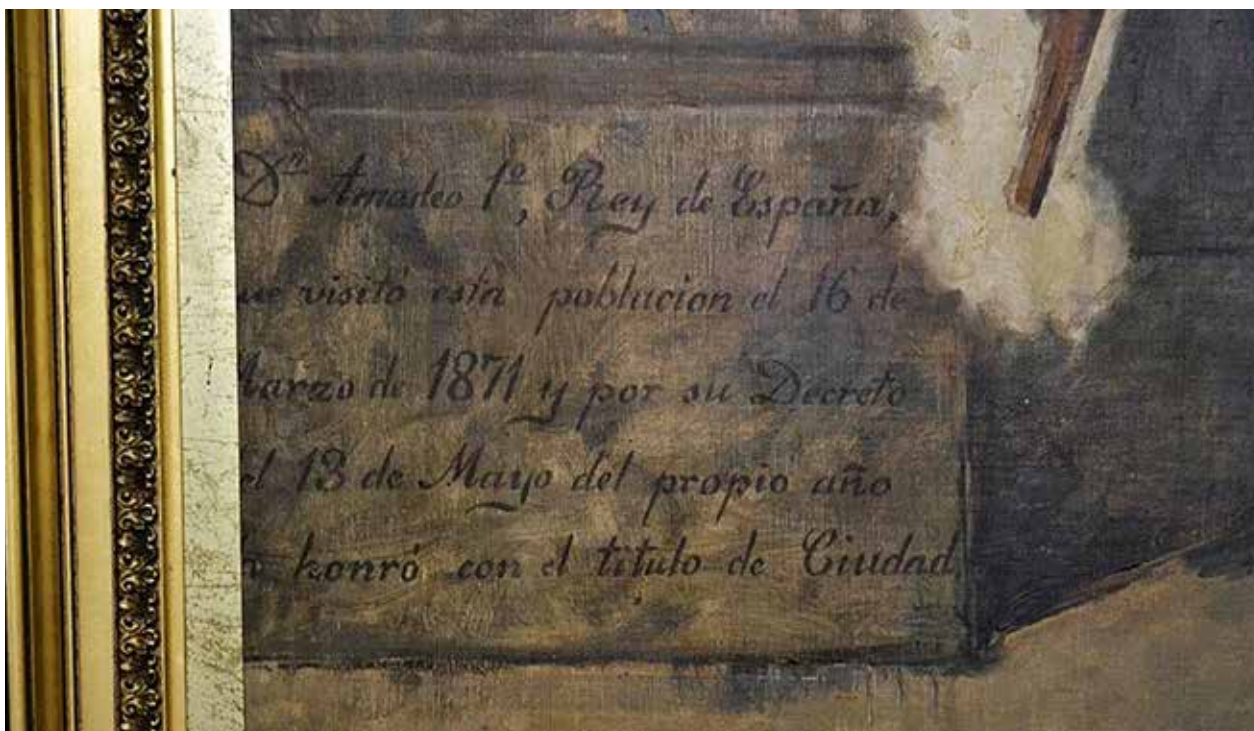 Dn Amadeo 1º, Rey de España,
ue visitó esta poblacion el 16 de
Marzo de 1871 y por su Decreto
el 13 de Mayo del propio año
honró con el título de Ciudad